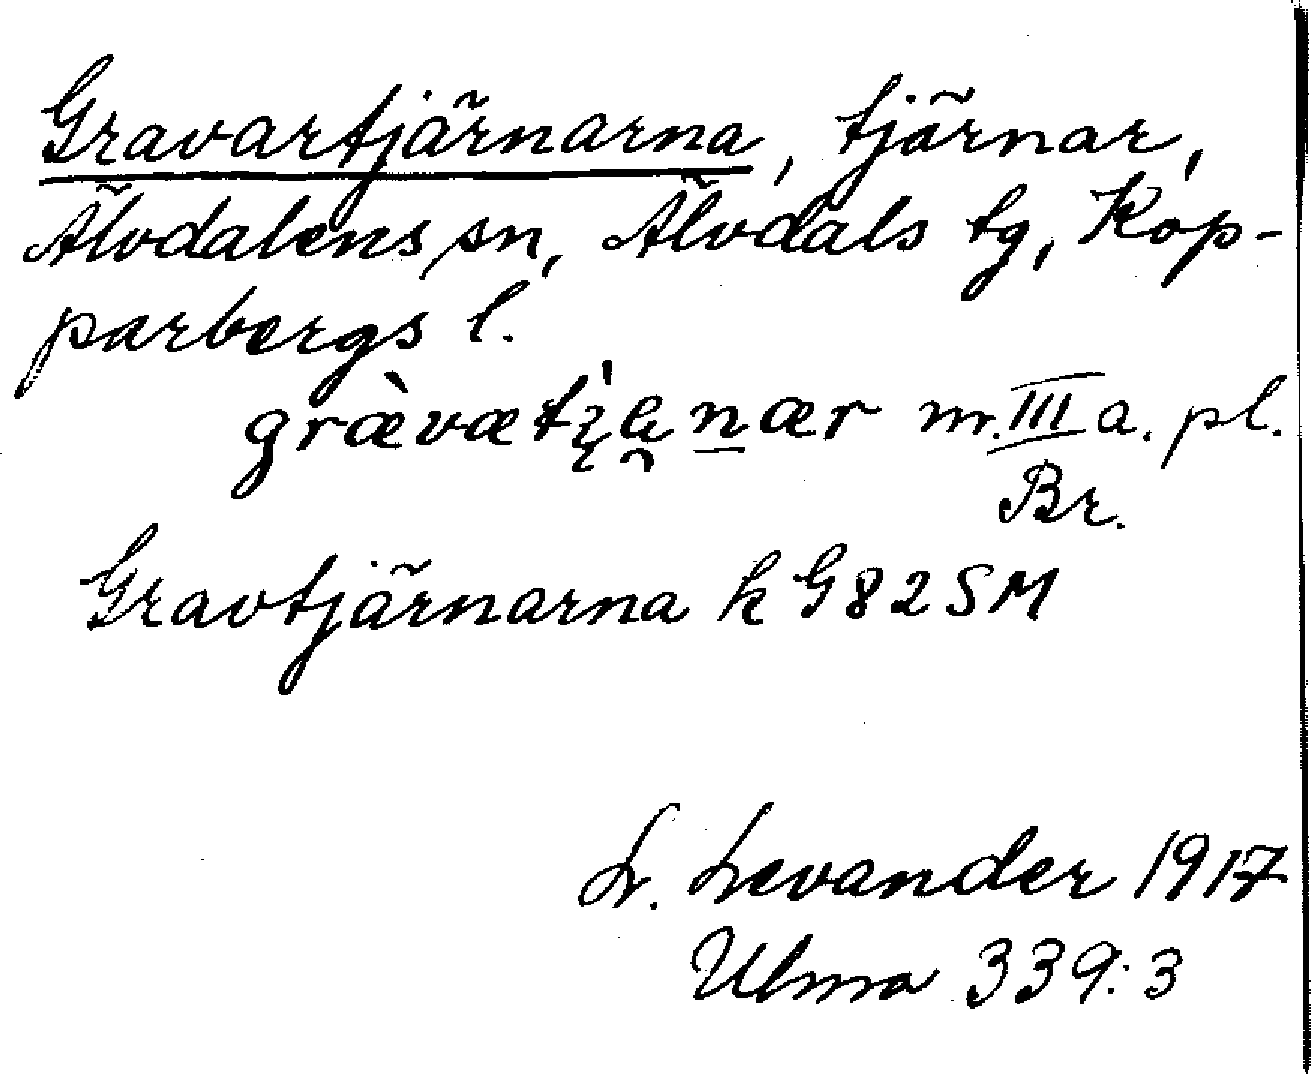 Gravartjärnarna, tjärnar,
Älvdalens sn, Älvdals tg, Kop-
parbergs l.
m. III a. pl.
Br.
Gravtjärnarna k G82SM
L. Levander 1917
Ulma 339:3